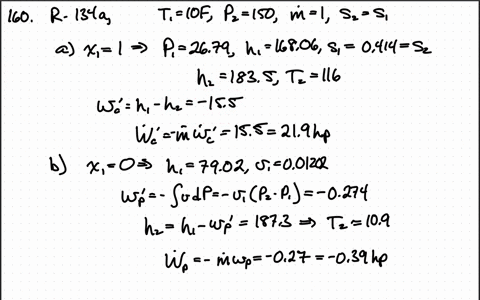 160. R-134a, T₁=10F, P₂=150, ṁ=1, s₂=s₁
a) x₁=1 ⇒ P₁=26.79, h₁=168.06, s₁=0.414=s₂
h₂=183.5, T₂=116
wc'=h₁-h₂=-15.5
Ẇc'=-ṁẇc'=15.5=21.9hp
b) x₁=0⇒ h₁=79.02, v₁=0.0122
wp'=-∫vdP=-v₁(P₂-P₁)=-0.274
h₂=h₁-wp'=187.3 ⇒ T₂=10.9
Ẇp=-ṁwp=-0.27=-0.39hp